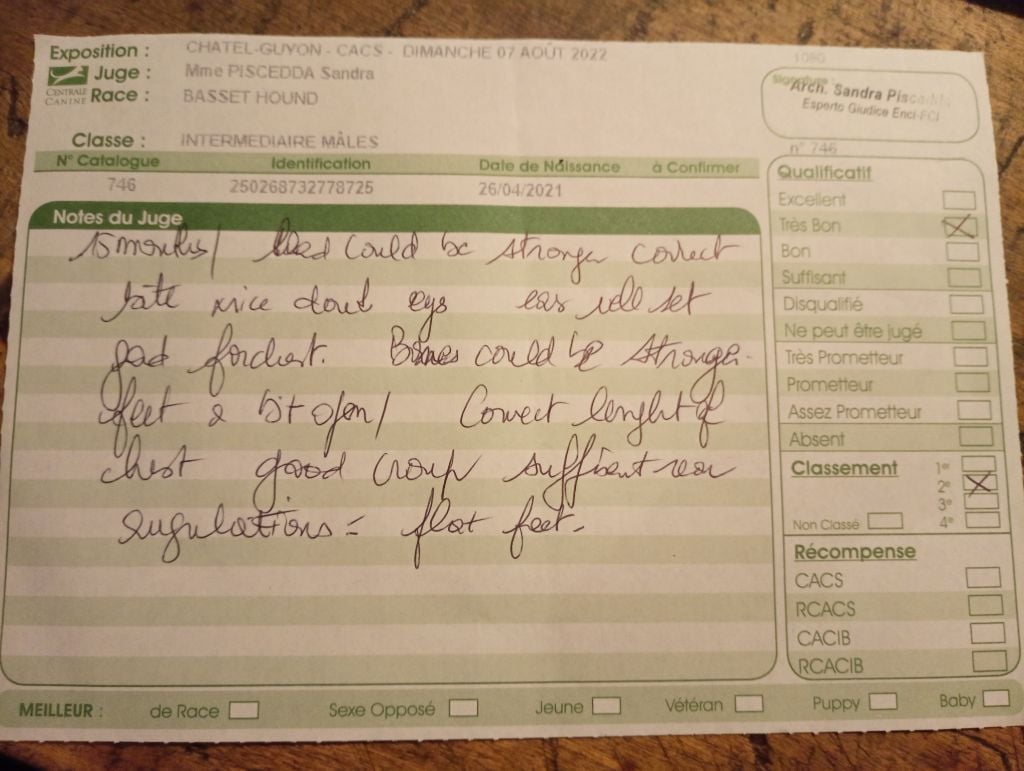 Exposition : CHATEL-GUYON - CACS - DIMANCHE 07 AOÛT 2022
1086
Juge : Mme PISCEDDA Sandra
CENTRALE CANINE
Race : BASSET HOUND
Signature :
Arch. Sandra Piscedda
Esperto Giudice Enci-FCI
Classe : INTERMEDIAIRE MÂLES
n° 746
N° Catalogue Identification Date de Naissance à Confirmer
746 250268732778725 26/04/2021
Notes du Juge
15 months / head could be stronger correct
bite nice eys ears well set
forchest. Bones could be stronger.
feet a bit open / Correct lenght of
chest good croup rear
angulations = flat feet.
Qualificatif
Excellent
Très Bon
Bon
Suffisant
Disqualifié
Ne peut être jugé
Très Prometteur
Prometteur
Assez Prometteur
Absent
Classement 1er
2e
3e
Non Classé 4e
Récompense
CACS
RCACS
CACIB
RCACIB
MEILLEUR : de Race Sexe Opposé Jeune Vétéran Puppy Baby